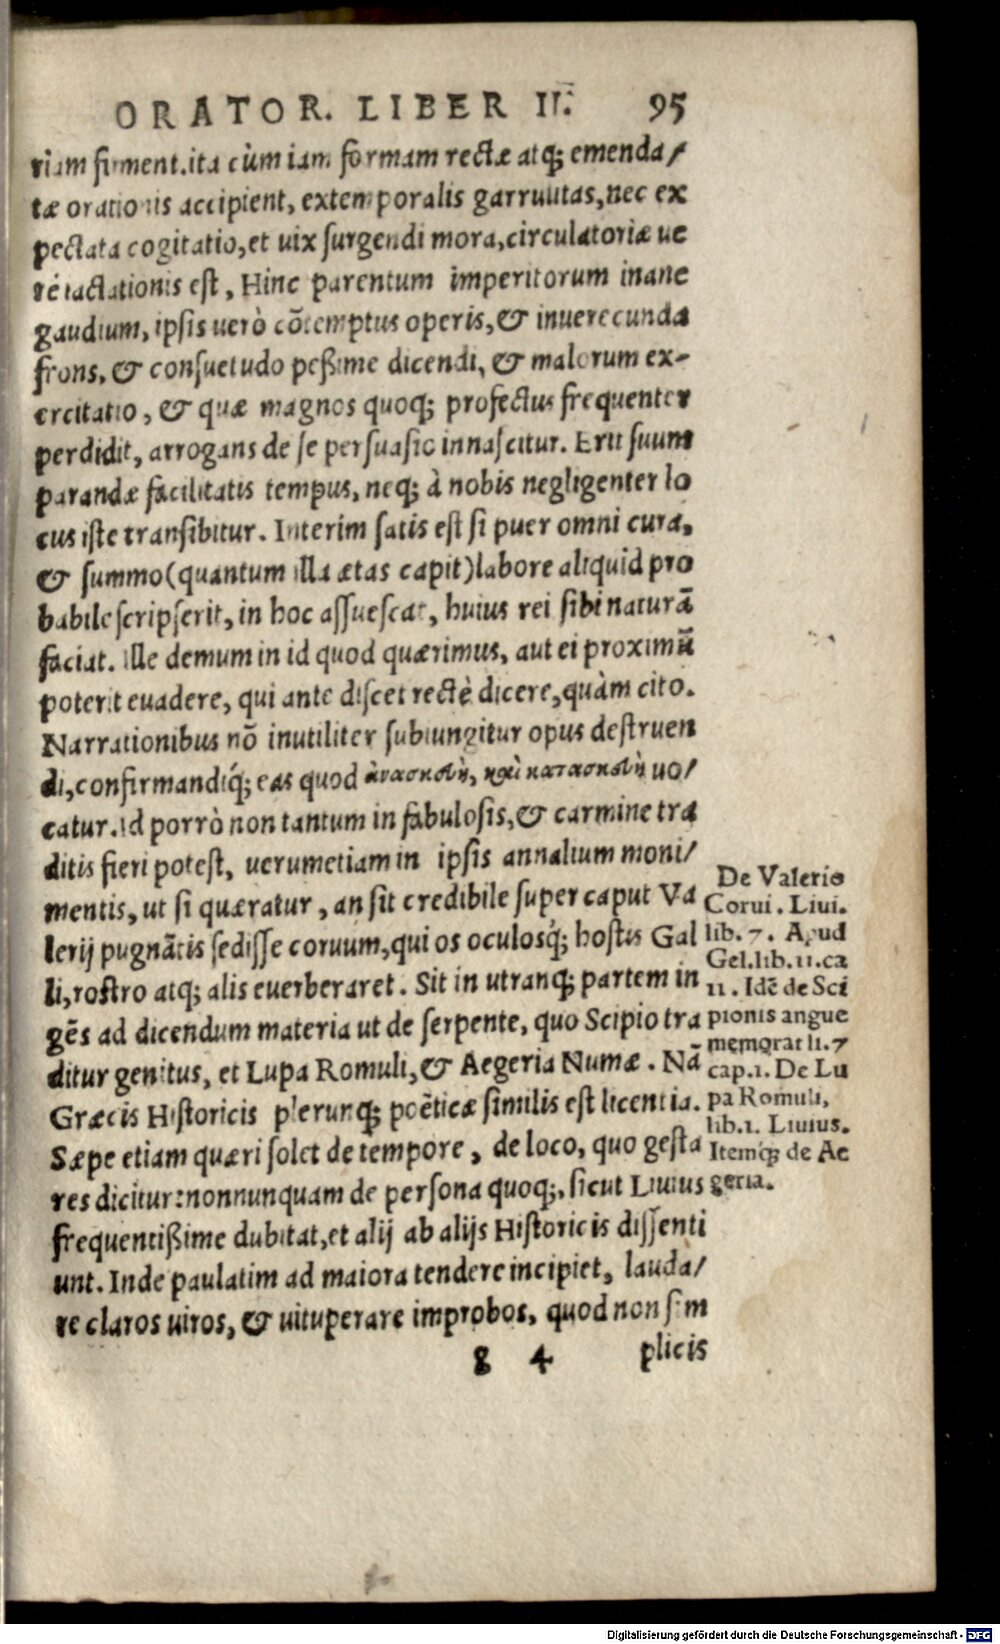 ORATOR. LIBER II. 95
riam firment. ita cùm iam formam rectæ atq; emenda/
tæ orationis accipient, extemporalis garrulitas, nec ex
pectata cogitatio, et uix surgendi mora, circulatoriæ ue
rè iactationis est, Hinc parentum imperitorum inane
gaudium, ipsis uerò cōtemptus operis, & inuerecunda
frons, & consuetudo peßime dicendi, & malorum ex-
ercitatio, & quæ magnos quoq; profectus frequenter
perdidit, arrogans de se persuasio innascitur. Erit suum
parandæ facilitatis tempus, neq; à nobis negligenter lo
cus iste transibitur. Interim satis est si puer omni cura,
& summo (quantum illa ætas capit) labore aliquid pro
babile scripserit, in hoc assuescat, huius rei sibi naturā
faciat. Ille demum in id quod quærimus, aut ei proximū
poterit euadere, qui ante discet rectè dicere, quàm cito.
Narrationibus nō inutiliter subiungitur opus destruen
di, confirmandíq; eas quod ἀνασκευὴ, καὶ κατασκευὴ uo/
catur. Id porrò non tantum in fabulosis, & carmine tra
ditis fieri potest, uerumetiam in ipsis annalium moni/
mentis, ut si quæratur, an sit credibile super caput Va
lerij pugnātis sedisse coruum, qui os oculosq́; hostis Gal
li, rostro atq; alis euerberaret. Sit in utranq; partem in
gēs ad dicendum materia ut de serpente, quo Scipio tra
ditur genitus, et Lupa Romuli, & Aegeria Numæ. Nā
Græcis Historicis plerunq; poëticæ similis est licentia.
Sæpe etiam quæri solet de tempore, de loco, quo gesta
res dicitur: nonnunquam de persona quoq;, sicut Liuius
frequentißime dubitat, et alij ab alijs Historicis dissenti
unt. Inde paulatim ad maiora tendere incipiet, lauda/
re claros uiros, & uituperare improbos, quod non sim
g 4 plicis
De Valerio
Corui. Liui.
lib. 7. Apud
Gel. lib. 11. ca
11. Idē de Sci
pionis angue
memorat li. 7
cap. 1. De Lu
pa Romuli,
lib. 1. Liuius.
Itemq́; de Ae
geria.
Digitalisierung gefördert durch die Deutsche Forschungsgemeinschaft - DFG